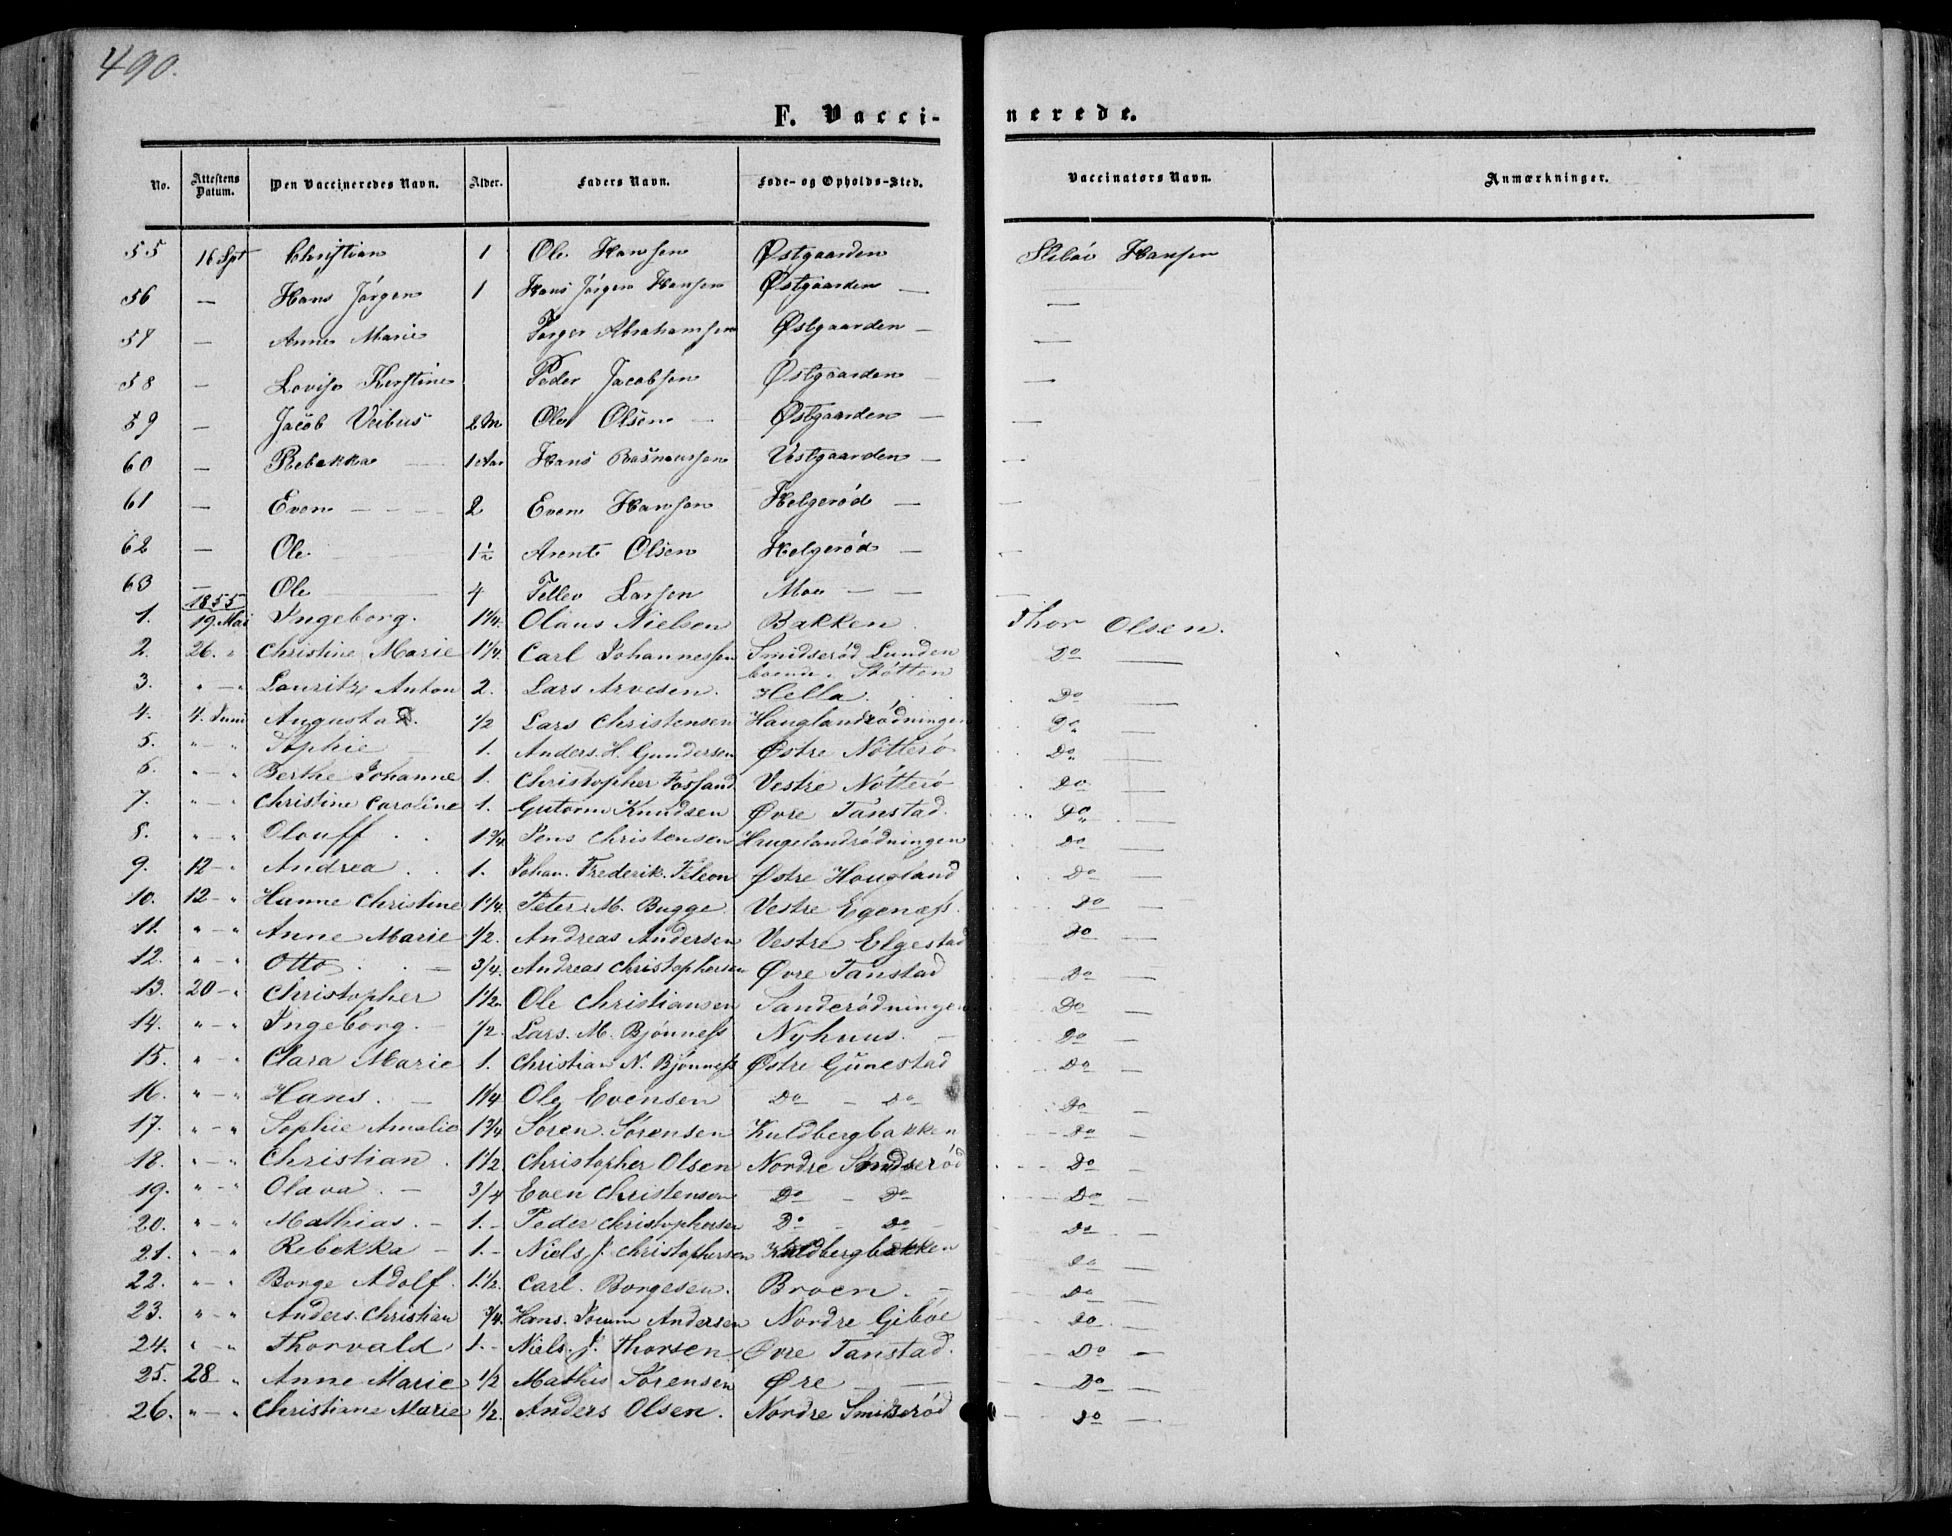 490.
F. Vacci-
nerede.
No. Attestens Datum. Den Vaccineredes Navn. Alder. Faders Navn. Føde- og Opholds-Sted. Vaccinators Navn. Anmærkninger.
55 16 Spt Christian 1 Ole Hansen Østgaarden Hansen
56 — Hans Jørgen 1 Hans Jørgen Hansen Østgaarden — —
57 — Anne Marie Torger Abrahamsen Østgaarden — —
58 — Lovise Kirstine Peder Jacobsen Østgaarden — —
59 — Jacob Veibus 2 M Ole Olsen — Østgaarden — —
60 — Rebekka — 1 Aar Hans Rasmussen Vestgaarden — —
61 — Even — — — 2 Even Hansen Helgerød — —
62 — Ole — 1½ Arent Olsen Helgerød — —
63 — Ole — 4 Tellev Larsen Moe — — —
1855
1. 19 Mai Ingeborg. 1 1/4. Olaus Nielsen Bakken. Thor Olsen.
2. 26. " Christine Marie 1 1/4. Carl Johannessen Smidserød Lunden Do —
boende i Støtten
3. " — " Lauritz Anton 2. Lars Arvesen. Hella. Do —
4. 4. Juni Augusta 1/2 Lars Christensen Hauglandrødningen Do —
5. " — " Sophie 1. Anders. H. Gundersen Østre Nötterö Do —
6. " — " Berthe Johanne 1. Christopher Fossand Vestre Nötterö Do —
7. " — " Christine Caroline 1. Gutorm Knudsen Øvre Tanstad. Do —
8. " — " Olouff. 1 3/4. Jens Christensen Haugelandrødningen Do —
9. 12 — " Andrea. 1. Johan. Frederik. Feleon Østre Hougland Do —
10. 12 — " Hanne Christine 1 1/4. Peter M. Bugge. Vestre Egenæss. Do —
11. " — " Anne Marie 1/2. Andreas Andersen Vestre Elgestad Do —
12. " — " Otto. — 3/4. Andreas Christophersen Øvre Tanstad Do —
13. 20 — " Christopher 1 1/2. Ole Christiansen Sanderødningen Do —
14. " — " Ingeborg. — 1/2. Lars. M. Bjönness Nyhuus. — Do —
15. " — " Clara Marie 1. Christian N. Bjönness Østre Gunestad Do —
16. " — " Hans. — 1 1/4 Ole Evensen Do — Do Do —
17. " — " Sophie Amalie 1 3/4 Sören. Sörensen Kuldbergbakken Do —
18. " — " Christian. 1 1/2 Christopher Olsen Nordre Smidserød Do —
19. " — " Olava. — 3/4 Even Christensen Do — Do Do —
20. " — " Mathias. — 1. — Peder Christophersen Do — Do — Do —
21. " — " Rebekka — 1. — Niels J. Christophersen Kuldbergbakken Do —
22. " — " Borge Adolf. 1 1/2. Carl. Borgesen. Broen. — Do —
23. " — " Anders. Christian 3/4. Hans. Jocum Andersen Nordre Gibøe Do —
24. " — " Thorvald 1. — Niels. J. Thorsen Øvre Tanstad. Do —
25. 28 " Anne Marie 1/2 Mathis Sörensen Øre — — Do —
26. " — " Christiane Marie 1/2. Anders Olsen. Nordre Smidserød Do —